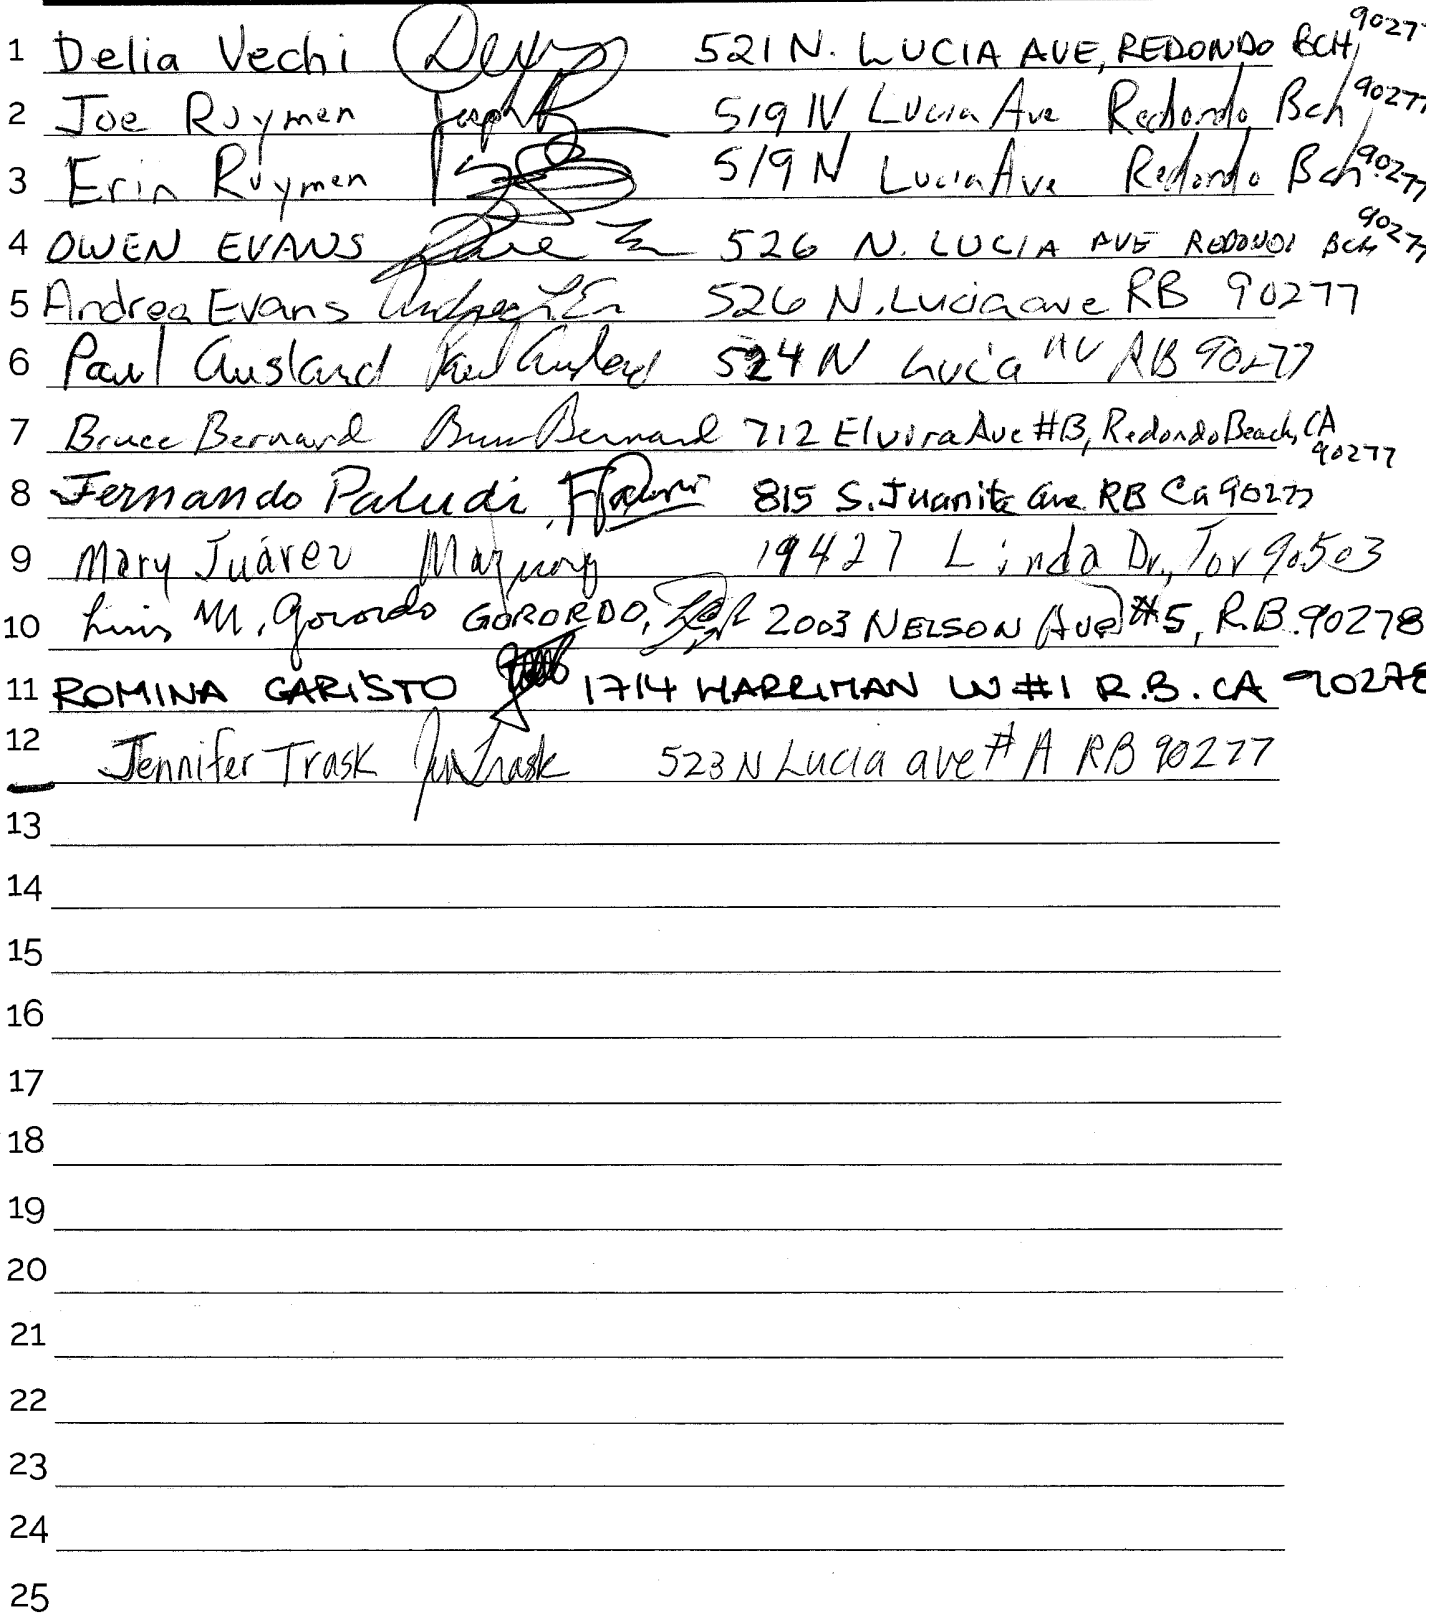 1 Delia Vechi 521 N. LUCIA AVE, REDONDO BCH, 90277
2 Joe Ruymen 519 N Lucia Ave Redondo Bch 90277
3 Erin Ruymen 519 N Lucia Ave Redondo Bch 90277
4 OWEN EVANS 526 N. LUCIA AVE REDONDO BCH 90277
5 Andrea Evans Andrea L. Ev 526 N. Lucia ave RB 90277
6 Paul Ausland Paul Ausland 524 N Lucia AV RB 90277
7 Bruce Bernard Bruce Bernard 712 Elvira Ave #B, Redondo Beach, CA 90277
8 Fernando Paludi, 815 S. Juanita ave. RB Ca 90277
9 Mary Juárez 19427 Linda Dr., Tor 90503
10 Luis M. Gorordo GORORDO, 2003 NELSON Ave #5, R.B. 90278
11 ROMINA CARISTO 1714 HARRIMAN LN #1 R.B. CA 90278
12 Jennifer Trask Jen Trask 523 N Lucia ave # A RB 90277
13
14
15
16
17
18
19
20
21
22
23
24
25